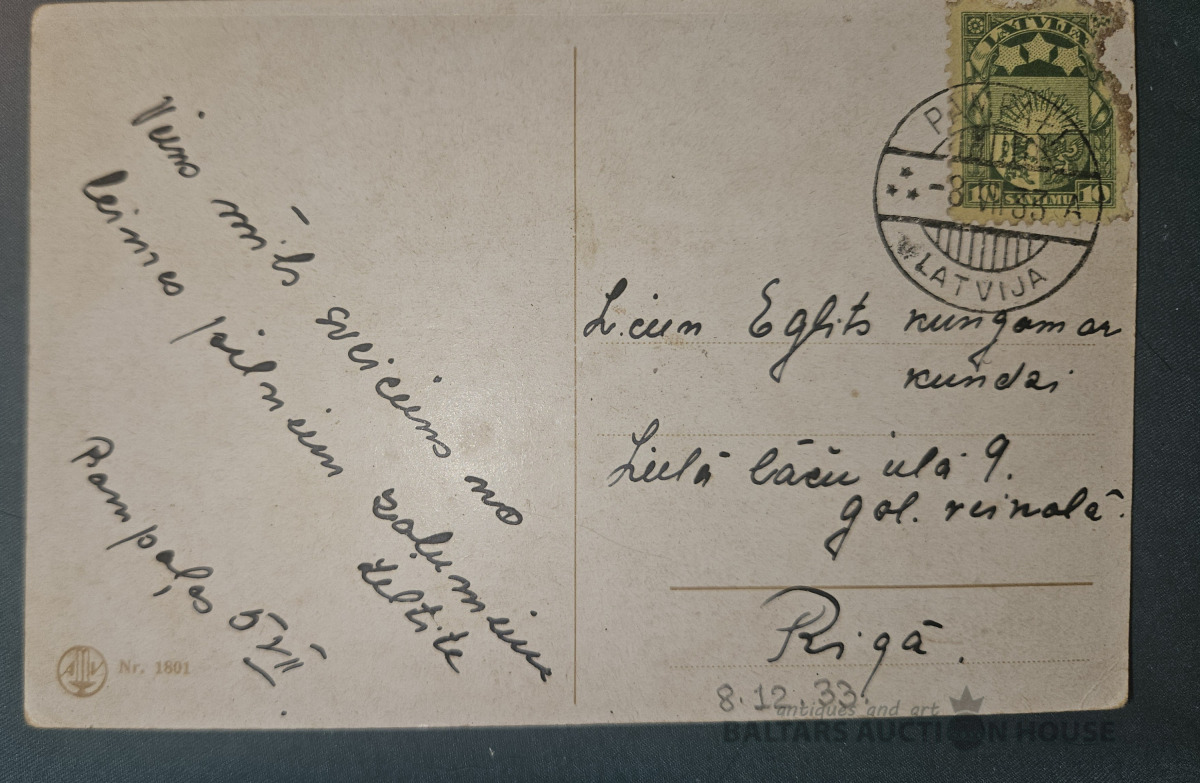 Viens mīļš sveiciens no
leimes pilniem zaļumiem
Zeltīte
Pampaļos 5 VII
Nr. 1801
LATVIJA
10 SANTIMU 10
-8 VII 33 A
LATVIJA
L.cien Eglīts kungam ar
kundzi
Lielā lāču ielā 9.
gal. veikalā.
Rīgā.
8.12.33.
antiques and art
BALTARS AUCTION HOUSE